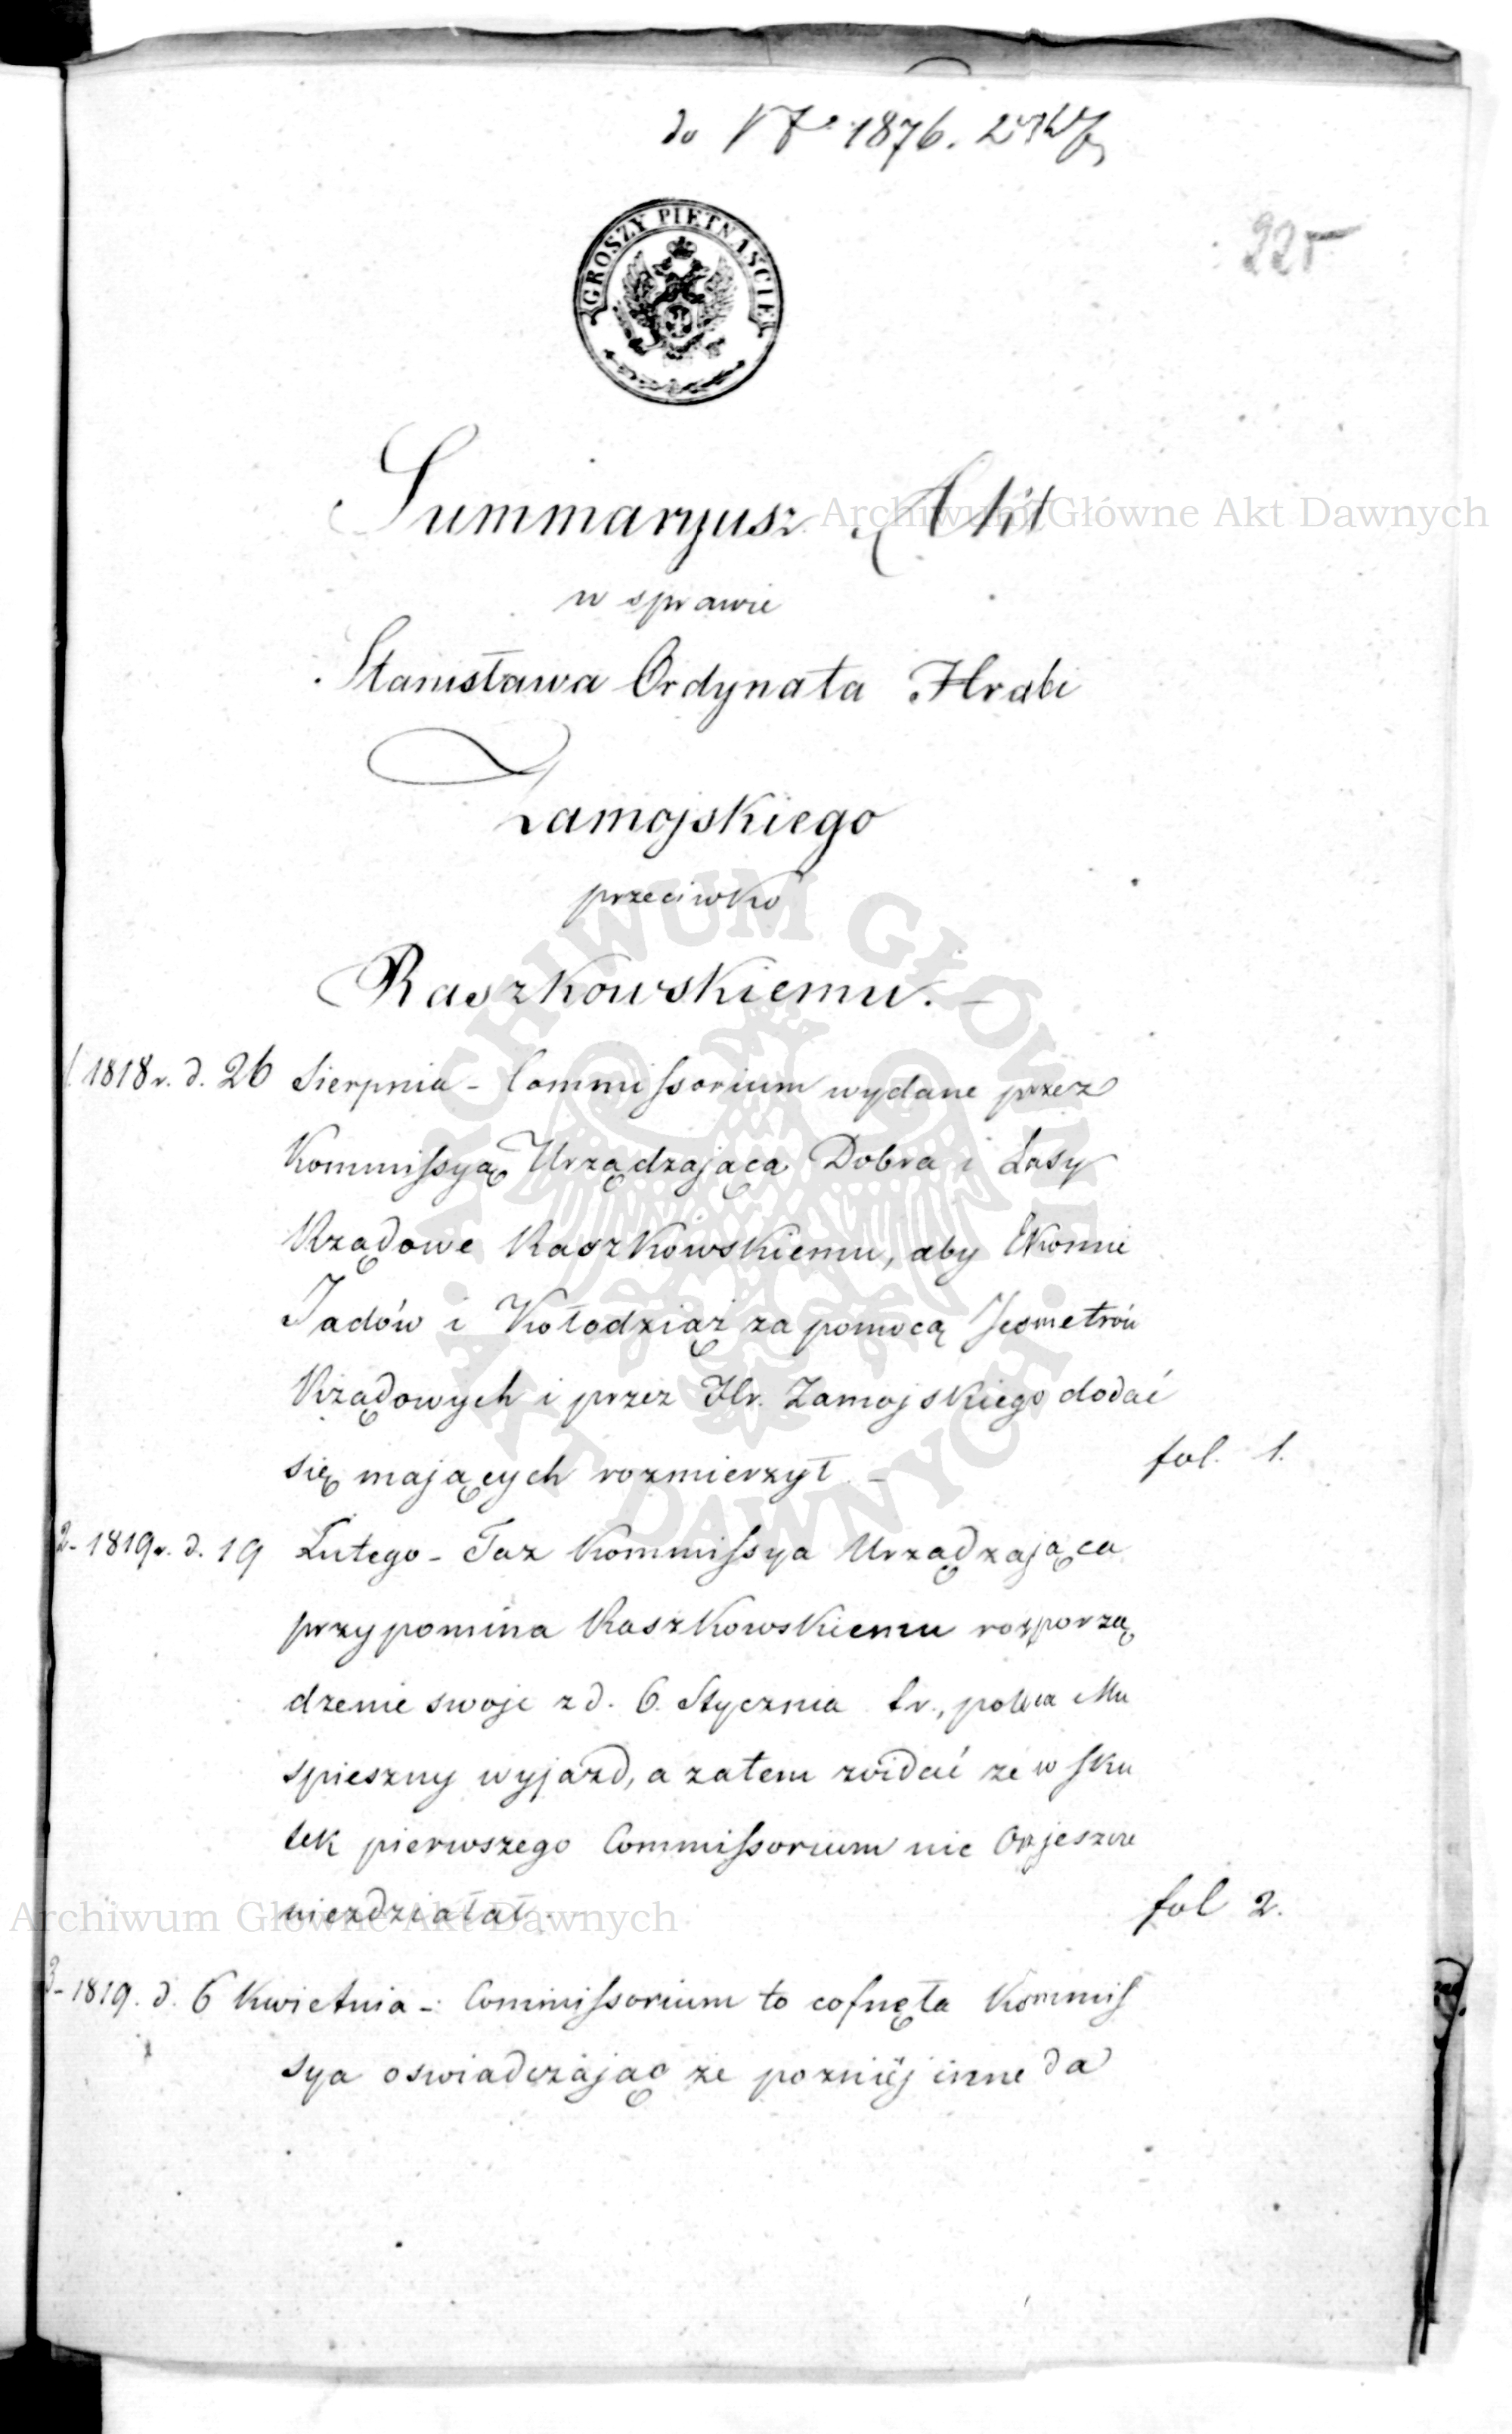 do 1876.
225
GROSZY PIĘTNAŚCIE
Summaryusz Akt
w sprawie
Stanisława Ordynata Hrabi
Zamojskiego
przeciwko
Raszkowskiemu. –
1. 1818 r. d. 26 Sierpnia – Commissorium wydane przez
Kommissyą Urządzającą Dobra i Lasy
Rządowe Raszkowskiemu, aby Ekonie
Jadów i Kołodziąż za pomocą Jeometrów
Rządowych i przez Hr. Zamojskiego dodać
się mających rozmierzył. –
fol. 1.
2 – 1819 r. d. 19 Lutego – Taz Kommissya Urządzająca
przypomina Raszkowskiemu rozporzą
dzenie swoje z d. 6. Stycznia t. r., poleca Mu
spieszny wyjazd, a zatem widać ze w sku
tek pierwszego Commissorium nic On jeszcze
niezdziałał. –
fol 2.
3 – 1819. d. 6 Kwietnia – Commissorium to cofnęła Kommis
sya oswiadczając ze pozniéj inne da
Archiwum Główne Akt Dawnych
Archiwum Główne Akt Dawnych
ARCHIWUM GŁÓWNE AKT DAWNYCH